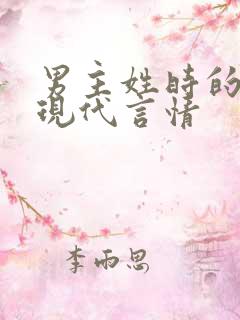 男主姓時的
現代言情
李雨思